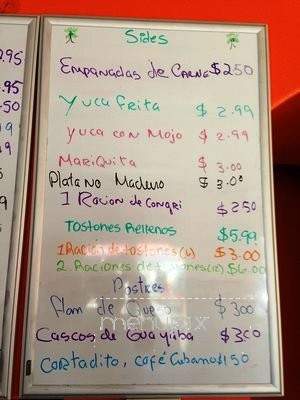 Sides
Empanadas de Carne $250
Yuca Frita $2.99
Yuca con Mojo $2.99
Mariquita $3.00
Platano Maduro $3.00
1 Racion de Congri $250
Tostones Rellenos $5.99
1 Racion de tostones (u) $3.00
2 Raciones de tostones $6.00
Postres
Flan de Queso $300
Cascos de Guayiba $300
Cortadito, Café Cubano $150
menupix
2.95
.95
.50